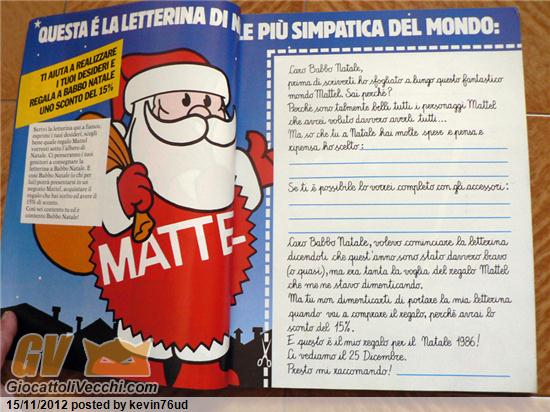 QUESTA É LA LETTERINA DI N LE PIÙ SIMPATICA DEL MONDO:
TI AIUTA A REALIZZARE
I TUOI DESIDERI E
REGALA A BABBO NATALE
UNO SCONTO DEL 15%
Scrivi la letterina qui a fianco,
esprimi i tuoi desideri, scegli
bene quale regalo Mattel
vorresti sotto l'albero di
Natale. Ci penseranno i tuoi
genitori a consegnare la
letterina a Babbo Natale. E
così Babbo Natale (o chi per
lui) potrà presentarsi in un
negozio Mattel, acquistare il
regalo che hai scelto ed avere il
15% di sconto.
Così sei contento tu ed è
contento Babbo Natale!
MATTE
Caro Babbo Natale,
prima di scriverti ho sfogliato a lungo questo fantastico
mondo Mattel. Sai perché?
Perché sono talmente belli tutti i personaggi Mattel
che avrei voluto davvero averli tutti...
Ma so che tu a Natale hai molte spese e pensa e
ripensa ho scelto:
Se ti è possibile lo vorrei completo con gli accessori:
Caro Babbo Natale, volevo cominciare la letterina
dicendoti che quest'anno sono stato davvero bravo
(o quasi), ma era tanta la voglia del regalo Mattel
che me ne stavo dimenticando.
Ma tu non dimenticarti di portare la mia letterina
quando vai a comprare il regalo, perché avrai lo
sconto del 15%.
E questo è il mio regalo per il Natale 1986!
Ci vediamo il 25 Dicembre.
Presto mi raccomando!
GV
GiocattoliVecchi.com
15/11/2012 posted by kevin76ud